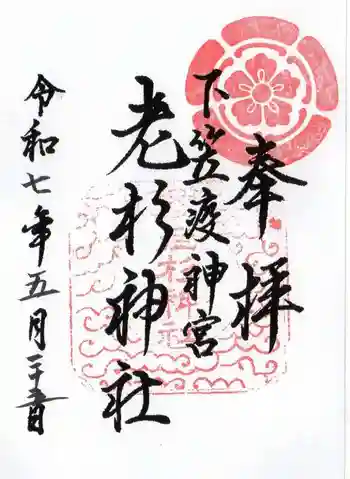 奉拝
下笠渡神宮
老杉神社
令和七年五月